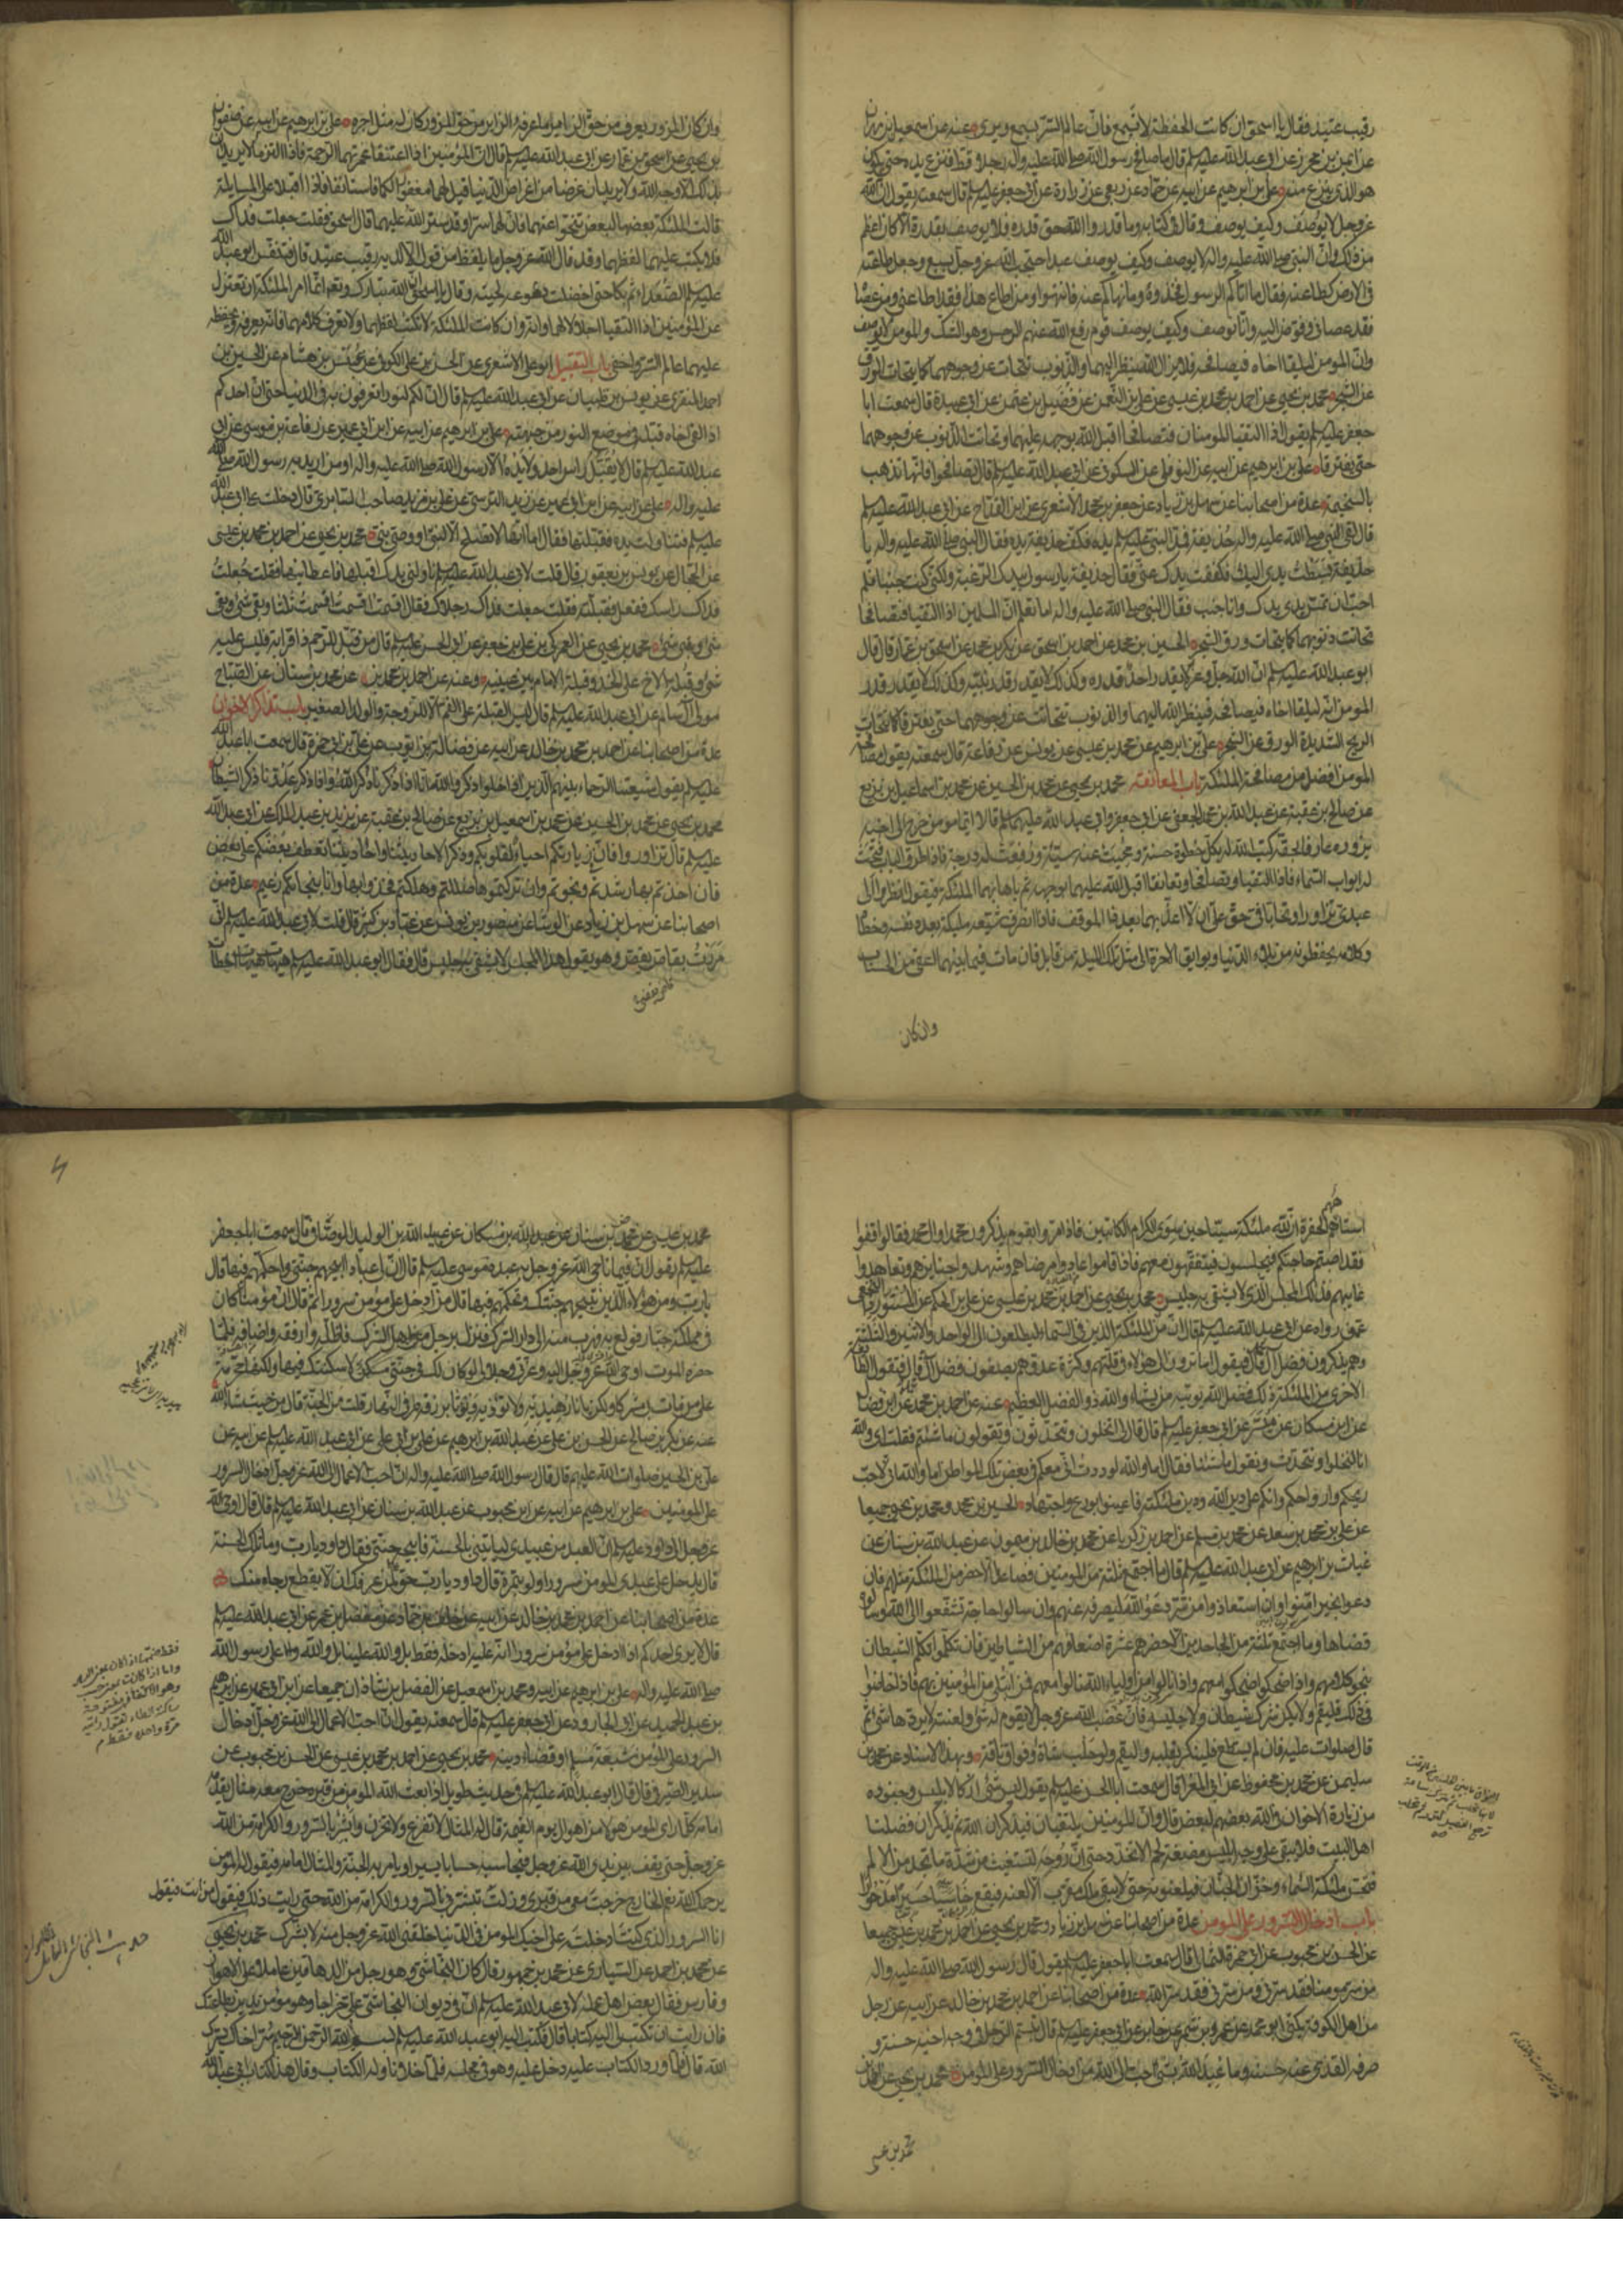 رقيب عتيد فقال يا اسحق ان كانت الحفظة لا تسمع فان عالم السر يسمع ويرى عنه عن اسمعيل بن مهران
عن ايمن بن محرز عن ابى عبد الله عليه السلم قال ما صافح رسول الله صلى الله عليه واله رجلا قط فنزع يده حتى يكون
هو الذى ينزع منه على بن ابرهيم عن ابيه عن حماد عن ربعى عن زرارة عن ابى جعفر عليه السلم قال سمعته يقول ان الله
عز وجل لا يوصف وكيف يوصف وقال فى كتابه وما قدروا الله حق قدره فلا يوصف بقدر الا كان اعظم
من ذلك وان النبى صلى الله عليه واله لا يوصف وكيف يوصف عبد احتجب الله عز وجل بسبع وجعل طاعته
فى الارض كطاعته فقال ما اتاكم الرسول فخذوه وما نهاكم عنه فانتهوا ومن اطاع هذا فقد اطاعنى ومن عصاه
فقد عصانى وفوض اليه وانا لا نوصف وكيف يوصف قوم رفع الله عنهم الرجس وهو الشك والمومن لا يوصف
وان المومن ليلقا اخاه فيصافحه فلا يزال الله ينظر اليهما والذنوب تتحات عن وجوههما كما يتحات الورق
عن الشجر محمد بن يحيى عن احمد بن محمد بن عيسى عن على بن النعمن عن فضيل بن عثمن عن ابى عبيدة قال سمعت ابا
جعفر عليه السلم يقول اذا التقيا المومنان فتصافحا اقبل الله بوجهه عليهما وتحاتت الذنوب عن وجوههما
حتى يفترقا على بن ابرهيم عن ابيه عن النوفلى عن السكونى عن ابى عبد الله عليه السلم قال تصافحوا فانها تذهب
بالسخيمة عدة من اصحابنا عن سهل بن زياد عن جعفر بن محمد الاشعرى عن ابن القداح عن ابى عبد الله عليه السلم
قال لقى النبى صلى الله عليه واله حذيفة فمد النبى عليه السلم يده فكف حذيفة يده فقال النبى صلى الله عليه واله يا
حذيفة بسطت يدى اليك فكففت يدك عنى فقال حذيفة يا رسول الله بيدك الرغبة ولكنى كنت جنبا فلم
احب ان تمس يدى يدك وانا جنب فقال النبى صلى الله عليه واله اما تعلم ان المسلمين اذا التقيا فتصافحا
تحاتت ذنوبهما كما يتحات ورق الشجر الحسين بن محمد عن احمد بن اسحق عن بكر بن محمد عن اسحق بن عمار قال قال
ابو عبد الله عليه السلم ان الله جل وعز لا يقدر احد قدره وكذلك لا يقدر قدر نبيه وكذلك لا يقدر قدر
المومن انه ليلقا اخاه فيصافحه فينظر الله اليهما والذنوب تتحات عن وجوههما حتى يفترقا كما تتحات
الريح الشديدة الورق عن الشجر على بن ابرهيم عن محمد بن عيسى عن يونس عن رفاعة قال سمعته يقول مصافحة
المومن افضل من مصافحة الملئكة باب المعانقة محمد بن يحيى عن محمد بن الحسين عن محمد بن اسماعيل بن بزيع
عن صالح بن عقبة عن عبد الله بن محمد الجعفى عن ابى جعفر وابى عبد الله عليهما السلم قالا ايما مومن خرج الى اخيه
يزوره عارفا بحقه كتب الله له بكل خطوة حسنة ومحيت عنه سيئة ورفعت له درجة فاذا طرق الباب فتحت
له ابواب السماء فاذا التقيا وتصافحا وتعانقا اقبل الله عليهما بوجهه ثم باها بهما الملئكة فيقول انظروا الى
عبدى تزاورا وتحابا فى حق على ان لا اعذبهما بعد هذا الموقف فاذا انصرف شيعه ملئكة بعدد نفسه وخطاه
وكلامه يحفظونه من بلاء الدنيا وبوايق الاخرة الى مثل تلك الليلة من قابل فان مات فيما بينهما اعفى من الحساب
وان كان
وان كان المزور يعرف من حق الزاير ما عرفه الزاير من حق المزور كان له مثل اجره على بن ابرهيم عن ابيه عن صفوان
بن يحيى عن اسحق بن عمار عن ابى عبد الله عليه السلم قال ان المؤمنين اذا اعتنقا غمرتهما الرحمة فاذا التزما لا يريدان
بذلك الا وجه الله ولا يريدان غرضا من اغراض الدنيا قيل لهما مغفورا لكما فاستانفا فاذا اقبلا على المسايلة
قالت الملئكة بعضها لبعض تنحوا عنهما فان لهما سرا وقد ستر الله عليهما قال اسحق فقلت جعلت فداك
فلا يكتب عليهما لفظهما وقد قال الله عز وجل ما يلفظ من قول الا لديه رقيب عتيد قال فتنفس ابو عبد الله
عليه السلم الصعداء ثم بكا حتى اخضلت دموعه لحيته وقال يا اسحق ان الله تبارك وتعالى انما امر الملئكة ان تعتزل
عن المؤمنين اذا التقيا اجلالا لهما وانه وان كانت الملئكة لا تكتب لفظهما ولا تعرف كلامهما فانه يعرفه ويحفظه
عليهما عالم السر واخفى باب التقبيل ابو على الاشعرى عن الحسن بن على الكوفى عن عبيس بن هشام عن الحسين بن
احمد المنقرى عن يونس بن ظبيان عن ابى عبد الله عليه السلم قال ان لكم لنورا تعرفون به فى الدنيا حتى ان احدكم
اذا لقى اخاه قبله فى موضع النور من جبهته على بن ابرهيم عن ابيه عن ابن ابى عمير عن رفاعة بن موسى عن ابى
عبد الله عليه السلم قال لا يقبل راس احد ولا يده الا رسول الله صلى الله عليه واله او من اريد به رسول الله صلى الله
عليه واله على عن ابيه عن ابن ابى عمير عن زيد النرسى عن على بن مزيد صاحب السابرى قال دخلت على ابى عبد الله
عليه السلم فتناولت يده فقبلتها فقال اما انها لا تصلح الا لنبى او وصى نبى محمد بن يحيى عن احمد بن محمد بن عيسى
عن الحجال عن يونس بن يعقوب قال قلت لابى عبد الله عليه السلم ناولنى يدك اقبلها فاعطانيها فقلت جعلت
فداك راسك ففعل فقبلته فقلت جعلت فداك رجلاك فقال اقسمت اقسمت اقسمت ثلثا وبقى شئ وبقى
شئ وبقى شئ محمد بن يحيى عن العمركى بن على عن على بن جعفر عن ابى الحسن عليه السلم قال من قبل للرحم ذا قرابة فليس عليه
شئ وقبلة الاخ على الخد وقبلة الامام بين عينيه وعنه عن احمد بن محمد بن عن محمد بن سنان عن الصباح
مولى ال سام عن ابى عبد الله عليه السلم قال ليس القبلة على الفم الا للزوجة والولد الصغير باب تذاكر الاخوان
عدة من اصحابنا عن احمد بن محمد بن خالد عن ابيه عن فضالة بن ايوب عن على بن ابى حمزة قال سمعت ابا عبد الله
عليه السلم يقول شيعتنا الرحماء بينهم الذين اذا خلوا ذكروا الله انا اذا ذكرنا ذكر الله واذا ذكر عدونا ذكر الشيطان
محمد بن يحيى عن محمد بن الحسين عن محمد بن اسمعيل بن بزيع عن صالح بن عقبة عن يزيد بن عبد الملك عن ابى عبد الله
عليه السلم قال تزاوروا فان زيارتكم احياء لقلوبكم وذكرا لاحاديثنا واحاديثنا تعطف بعضكم على بعض
فان اخذتم بها رشدتم ونجوتم وان تركتموها ضللتم وهلكتم فخذوا بها وانا بنجاتكم زعيم عدة من
اصحابنا عن سهل بن زياد عن الوشا عن منصور بن يونس عن عباد بن كثير قال قلت لابى عبد الله عليه السلم انى
مررت بقاص يقص وهو يقول هذا المجلس لا يشقى به جليس قال فقال ابو عبد الله عليه السلم هيهات هيهات اخطات
استاههم الحفرة ان لله ملئكة سياحين سوى الكرام الكاتبين فاذا مروا بقوم يذكرون محمدا وال محمد فقالوا قفوا
فقد اصبتم حاجتكم فيجلسون فيتفقهون معهم فاذا قاموا عادوا مرضاهم وشهدوا جنايزهم وتعاهدوا
غايبهم فذلك المجلس الذى لا يشقى به جليس محمد بن يحيى عن احمد بن محمد بن عيسى عن على بن الحكم عن المستورد النخعى
عمن رواه عن ابى عبد الله عليه السلم قال ان من الملئكة الذين فى السماء ليطلعون الى الواحد والاثنين والثلثة
وهم يذكرون فضل ال محمد قال فيقول اما ترون الى هولاء فى قلتهم وكثرة عدوهم يصفون فضل ال محمد قال فتقول الطايفة
الاخرى من الملئكة ذلك فضل الله يوتيه من يشاء والله ذو الفضل العظيم عنه عن احمد بن محمد عن ابن فضال
عن ابن مسكان عن ميسر عن ابى جعفر عليه السلم قال قال لى اتخلون وتتحدثون وتقولون ما شئتم فقلت اى والله
انا لنخلوا ونتحدث ونقول ما شئنا فقال اما والله لوددت انى معكم فى بعض تلك المواطن اما والله انى لاحب
ريحكم وارواحكم وانكم على دين الله ودين ملئكته فاعينوا بورع واجتهاد الحسين بن محمد ومحمد بن يحيى جميعا
عن على بن محمد بن سعد عن محمد بن مسلم عن احمد بن زكريا عن محمد بن خالد بن ميمون عن عبد الله بن سنان عن
غياث بن ابرهيم عن ابى عبد الله عليه السلم قال ما اجتمع ثلثة من المومنين فصاعدا الا حضر من الملئكة مثلهم فان
دعوا بخير امنوا وان استعاذوا من شر دعوا الله ليصرفه عنهم وان سالوا حاجة تشفعوا الى الله وسالوه
قضاها وما اجتمع ثلثة من الجاحدين الا حضرهم عشرة اضعافهم من الشياطين فان تكلموا تكلم الشيطان
بنحو كلامهم واذا ضحكوا ضحكوا معهم واذا نالوا من اولياء الله نالوا معهم فمن ابتلى من المؤمنين بهم فاذا خاضوا
فى ذلك فليقم ولا يكن شرك شيطان ولا جليسه فان غضب الله عز وجل لا يقوم له شئ ولعنته لا يردها شئ ثم
قال صلوات عليه فان لم يستطع فلينكر بقلبه وليقم ولو حلب شاة او فواق ناقة وبهذا الاسناد عن محمد بن
سليمن عن محمد بن محفوظ عن ابى المغرا قال سمعت ابا الحسن عليه السلم يقول ليس شئ انكا لابليس وجنوده
من زيارة الاخوان فى الله بعضهم لبعض قال وان المومنين يلتقيان فيذكران الله ثم يذكران فضلنا
اهل البيت فلا يبقى على وجه ابليس مضغة لحم الا تخدد حتى ان روحه لتستغيث من شدة ما تجد من الالم
فتحس ملئكة السماء وخزان الجنان فيلعنونه حتى لا يبقى ملك مقرب الا لعنه فيقع خاسئا حسيرا مدحورا
باب ادخال السرور على المومن عدة من اصحابنا عن سهل بن زياد ومحمد بن يحيى عن احمد بن محمد بن عيسى جميعا
عن الحسن بن محبوب عن ابى حمزة الثمالى قال سمعت ابا جعفر عليه السلم يقول قال رسول الله صلى الله عليه واله
من سر مومنا فقد سرنى ومن سرنى فقد سر الله عدة من اصحابنا عن احمد بن محمد بن خالد عن ابيه عن رجل
من اهل الكوفة يكنى ابو محمد عن عمرو بن شمر عن جابر عن ابى جعفر عليه السلم قال تبسم الرجل فى وجه اخيه حسنة و
صرفه القذى عنه حسنة وما عبد الله بشئ احب الى الله من ادخال السرور على المومن محمد بن يحيى عن احمد بن
محمد بن عيسى
محمد بن عيسى عن محمد بن سنان عن عبد الله بن مسكان عن عبيد الله بن الوليد الوصافى قال سمعت ابا جعفر
عليه السلم يقول ان فيما ناجى الله عز وجل به عبده موسى عليه السلم قال ان لى عبادا ابيحهم جنتى واحكمهم فيها قال
يا رب ومن هؤلاء الذين تبيحهم جنتك وتحكمهم فيها قال من ادخل على مؤمن سرورا ثم قال ان مؤمنا كان
فى مملكة جبار فولع به فهرب منه الى دار الشرك فنزل برجل من اهل الشرك فاظله وارفقه واضافه فلما
حضره الموت اوحى الله عز وجل اليه وعزتى وجلالى لو كان لك فى جنتى مسكن لاسكنتك فيها ولكنها محرمة
على من مات بى مشركا ولكن يا نار هيديه ولا توذيه ويوتا برزقه طرفى النهار قلت من الجنة قال من حيث شاء الله
عنه عن بكر بن صالح عن الحسن بن على عن عبد الله بن ابرهيم عن على بن ابى على عن ابى عبد الله عليه السلم عن ابيه عن
على بن الحسين صلوات الله عليهم قال قال رسول الله صلى الله عليه واله ان احب الاعمال الى الله عز وجل ادخال السرور
على المومنين على بن ابرهيم عن ابيه عن ابن محبوب عن عبد الله بن سنان عن ابى عبد الله عليه السلم قال قال اوحى الله
عز وجل الى داود عليه السلم ان العبد من عبيدى لياتينى بالحسنة فابيحه جنتى فقال داود يا رب وما تلك الحسنة
قال يدخل على عبدى المومن سرورا ولو بتمرة قال داود يا رب حق لمن عرفك ان لا يقطع رجاه منك
عدة من اصحابنا عن احمد بن محمد بن خالد عن ابيه عن خلف بن حماد عن مفضل بن عمر عن ابى عبد الله عليه السلم
قال لا يرى احدكم اذا ادخل على مؤمن سرورا انه عليه ادخله فقط بل والله علينا بل والله على رسول الله
صلى الله عليه واله على بن ابرهيم عن ابيه ومحمد بن اسمعيل عن الفضل بن شاذان جميعا عن ابن ابى عمير عن ابرهيم
بن عبد الحميد عن ابى الجارود عن ابى جعفر عليه السلم قال سمعته يقول ان احب الاعمال الى الله عز وجل ادخال
السرور على المؤمن شبعة مسلم او قضاء دينه محمد بن يحيى عن احمد بن محمد بن عيسى عن الحسن بن محبوب عن
سدير الصيرفى قال قال ابو عبد الله عليه السلم فى حديث طويل اذا بعث الله المومن من قبره خرج معه مثال يقدم
امامه كلما راى المومن هولا من اهوال يوم القيمة قال له المثال لا تفزع ولا تحزن وابشر بالسرور والكرامة من الله
عز وجل حتى يقف بين يدى الله عز وجل فيحاسبه حسابا يسيرا ويامر به الى الجنة والمثال امامه فيقول له المؤمن
يرحمك الله نعم الخارج خرجت معى من قبرى وما زلت تبشرنى بالسرور والكرامة من الله حتى رايت ذلك فيقول من انت فيقول
انا السرور الذى كنت ادخلت على اخيك المومن فى الدنيا خلقنى الله عز وجل منه لابشرك محمد بن يحيى
عن محمد بن احمد عن السيارى عن محمد بن جمهور قال كان النجاشى وهو رجل من الدهاقين عاملا على الاهواز
وفارس فقال بعض اهل عمله لابى عبد الله عليه السلم ان فى ديوان النجاشى على خراجا وهو مؤمن يدين بطاعتك
فان رايت ان تكتب لى اليه كتابا قال فكتب اليه ابو عبد الله عليه السلم بسم الله الرحمن الرحيم سر اخاك يسرك
الله قال فلما ورد الكتاب عليه دخل عليه وهو فى مجلسه فلما خلا ناوله الكتاب وقال هذا كتاب ابى عبد الله